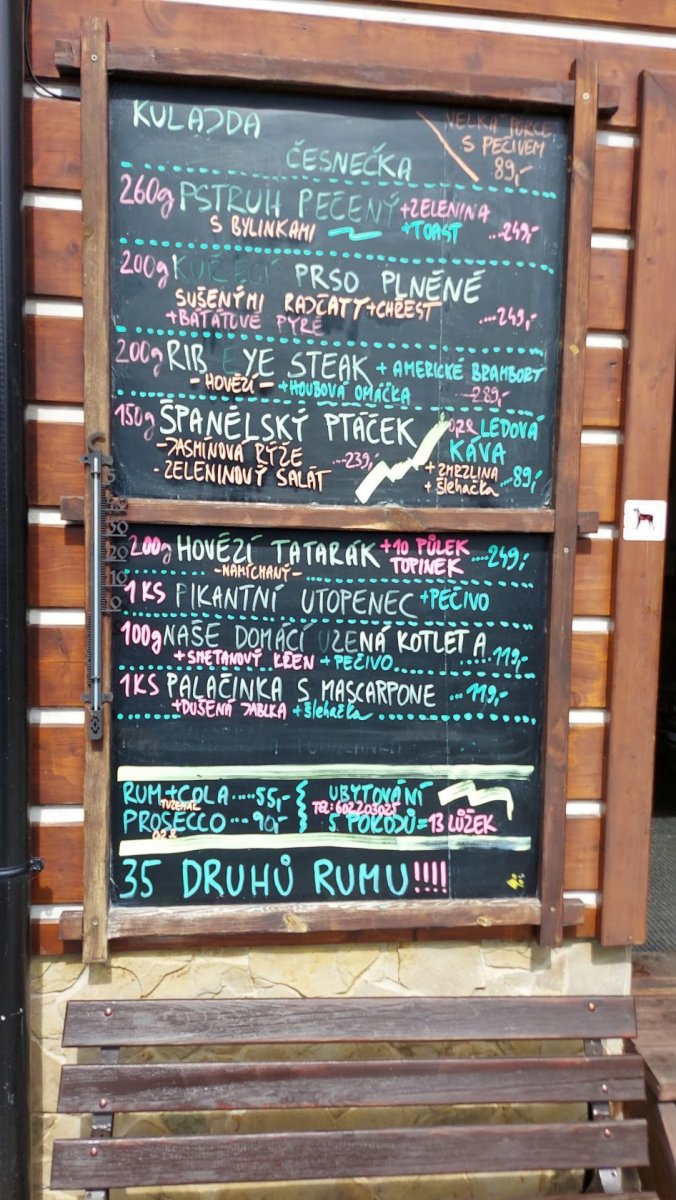 KULAJDA
VELKÁ PORCE
S PEČIVEM
89,-
ČESNEČKA
260g PSTRUH PEČENÝ +ZELENINA
S BYLINKAMI +TOAST ....249,-
200g KUŘECÍ PRSO PLNĚNÉ
SUŠENÝMI RAJČATY+CHŘEST
+BATÁTOVÉ PYRÉ ....249,-
200g RIB EYE STEAK + AMERICKÉ BRAMBORY
- HOVĚZÍ - +HOUBOVÁ OMÁČKA ...289,-
150g ŠPANĚLSKÝ PTÁČEK
-JASMÍNOVÁ RÝŽE ...239,-
- ZELENINOVÝ SALÁT
LEDOVÁ
KÁVA
+ ZMRZLINA
+ šlehačka ...89,-
200g HOVĚZÍ TATARÁK +10 PŮLEK
-NAMÍCHANÝ- TOPINEK ....249,-
1 KS PIKANTNÍ UTOPENEC +PEČIVO
100g NAŠE DOMÁCÍ UZENÁ KOTLETA
+SMETANOVÝ KŘEN +PEČIVO......119,-
1KS PALAČINKA S MASCARPONE ...119,-
+DUŠENÁ JABLKA +šlehačka
RUM+COLA .....55,-
TUZEMÁK
PROSECCO ...90,-
UBYTOVÁNÍ
TEL: 602203025
5 POKOJŮ=13 LŮŽEK
35 DRUHŮ RUMU!!!!